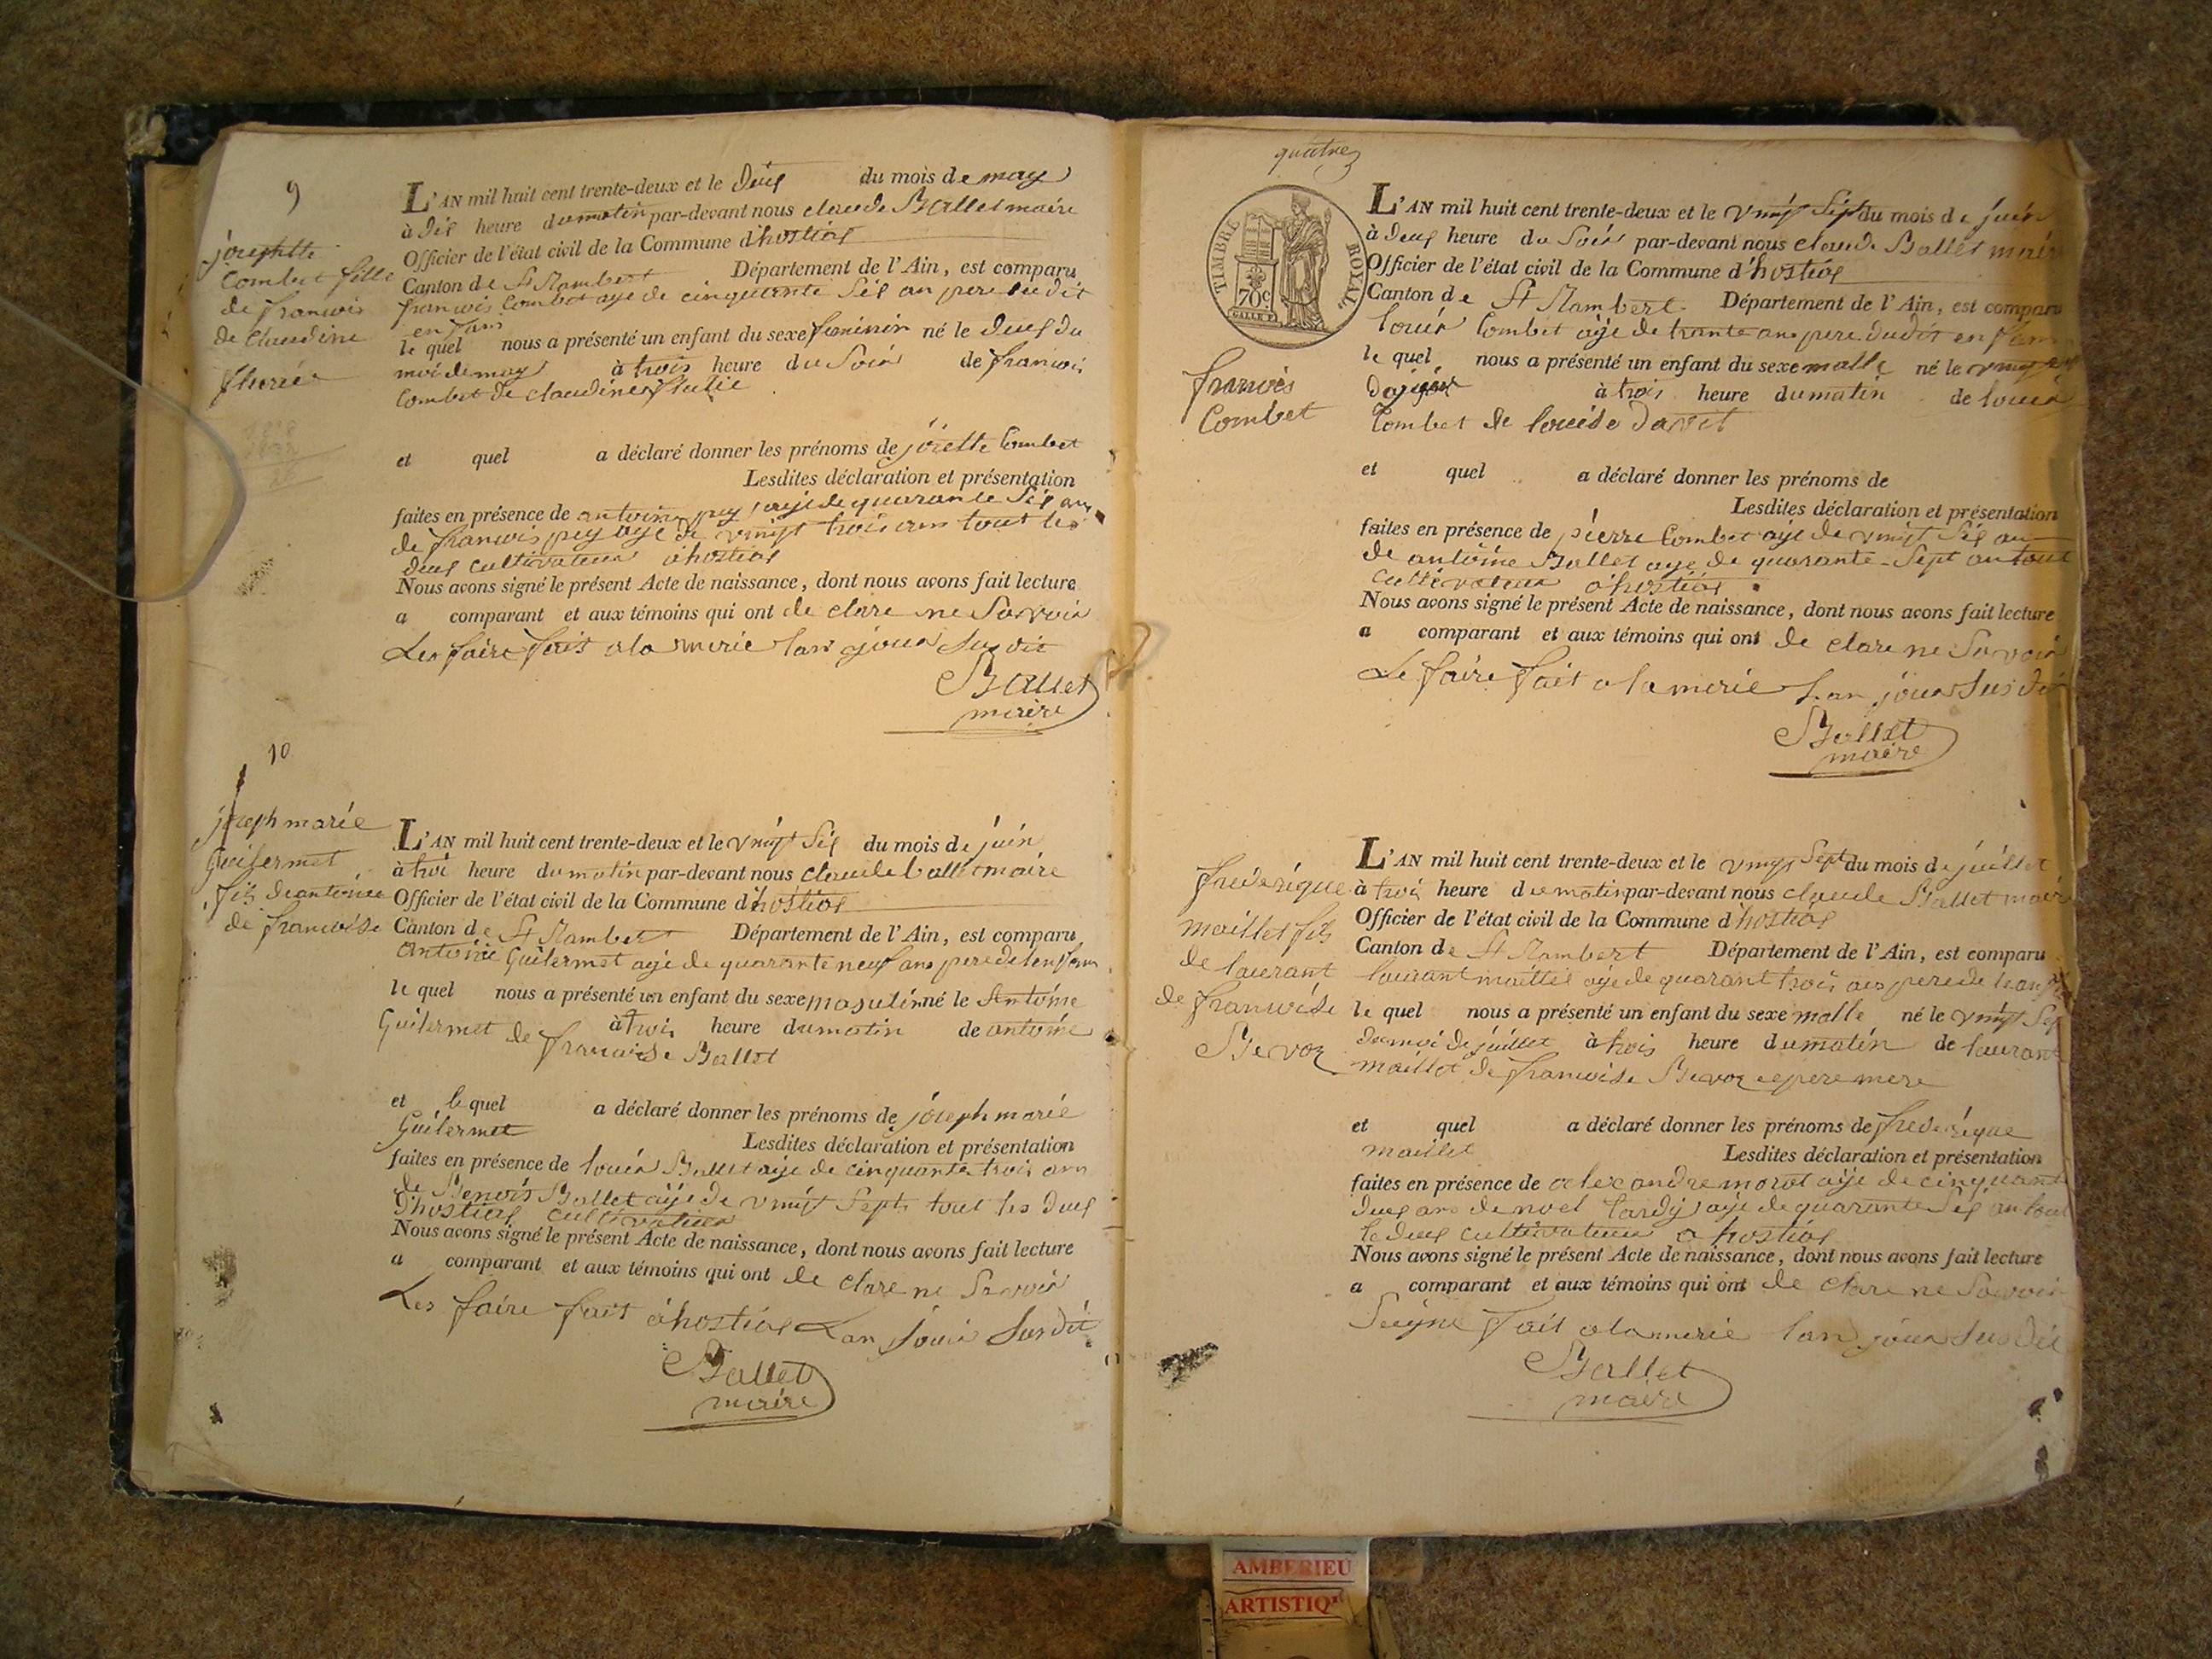 9
josephtte
Combet fille
de francois
de claudine
L'AN mil huit cent trente-deux et le deus du mois de may
à dis heure dumatin par-devant nous claude Ballet maire
Officier de l'état civil de la Commune d'hostias
Canton de St Rambert Département de l'Ain, est comparu
francois Combet aije de cinquante Sis an pere du dit
en fans
le quel nous a présenté un enfant du sexe feminin né le deus du
moi de may à trois heure du Soir de francois
Combet de claudine
et quel a déclaré donner les prénoms de josette Combet
Lesdites déclaration et présentation
faites en présence de antoine pey aije de quarante Sis an
de francois pey aije de vingt trois ans tout les
deus cultivateur a hostias
Nous avons signé le présent Acte de naissance, dont nous avons fait lecture
a comparant et aux témoins qui ont de clare ne Savoir
Les faire fait a la merie lan jour Sus dit
Ballet
maire
10
joseph marie
Guilermet
fis de antoine
de francoise
L'AN mil huit cent trente-deux et le vingt Sis du mois de juin
à troi heure dumatin par-devant nous claude ballet maire
Officier de l'état civil de la Commune d'hostias
Canton de St Rambert Département de l'Ain, est comparu
Antoine Guilermet aije de quarante neuf ans pere de lenfans
le quel nous a présenté un enfant du sexe masulin né le Antoine
Guilermet de à trois heure dumatin de antoine
francoise Ballet
et le quel a déclaré donner les prénoms de joseph marie
Guilermet
Lesdites déclaration et présentation
faites en présence de louis Ballet aije de cinquante trois ans
de Benois Ballet aije de vingt Sept tout les deus
d'hostias cultivateur
Nous avons signé le présent Acte de naissance, dont nous avons fait lecture
a comparant et aux témoins qui ont de clare ne Savoir
Les faire fait a hostias Lan jour Sus dit
Ballet
maire
quatre
TIMBRE ROYAL
70c
francois
Combet
L'AN mil huit cent trente-deux et le vingt Sept du mois de juin
à deus heure du Soir par-devant nous claude Ballet maire
Officier de l'état civil de la Commune d'hostias
Canton de St Rambert Département de l'Ain, est comparu
louis Combet aije de trante ans pere dudit en fans
le quel nous a présenté un enfant du sexe malle né le
à trois heure dumatin de louis
Combet de louise
et quel a déclaré donner les prénoms de
Lesdites déclaration et présentation
faites en présence de pierre Combet aije de vingt Sis an
de antoine Ballet aije de quarante-Sept an tout
cultivateur a hostias
Nous avons signé le présent Acte de naissance, dont nous avons fait lecture
a comparant et aux témoins qui ont de clare ne Savoir
Le faire fait a la merie Lan jour Sus dit
Ballet
maire
frederique
maillet fis
de laurant
de francoise
Bevoz
L'AN mil huit cent trente-deux et le vingt Sept du mois de juillet
à troi heure dumatin par-devant nous claude Ballet maire
Officier de l'état civil de la Commune d'hostias
Canton de St Rambert Département de l'Ain, est comparu
laurant maillet aije de quarant trois ans pere de
le quel nous a présenté un enfant du sexe malle né le vingt Sep
du moi de juillet à trois heure dumatin de laurant
maillet de francoise Bevoz pere mere
et quel a déclaré donner les prénoms de frederique
maillet
Lesdites déclaration et présentation
faites en présence de alexandre morot aije de cinquant
deus ans de noel tardy aije de quarante Sis an tout
le deus cultivateur a hostias
Nous avons signé le présent Acte de naissance, dont nous avons fait lecture
a comparant et aux témoins qui ont de clare ne Savoir
Seigne fait a la merie lan jour Sus dit
Ballet
maire
AMBERIEU
ARTISTIQ